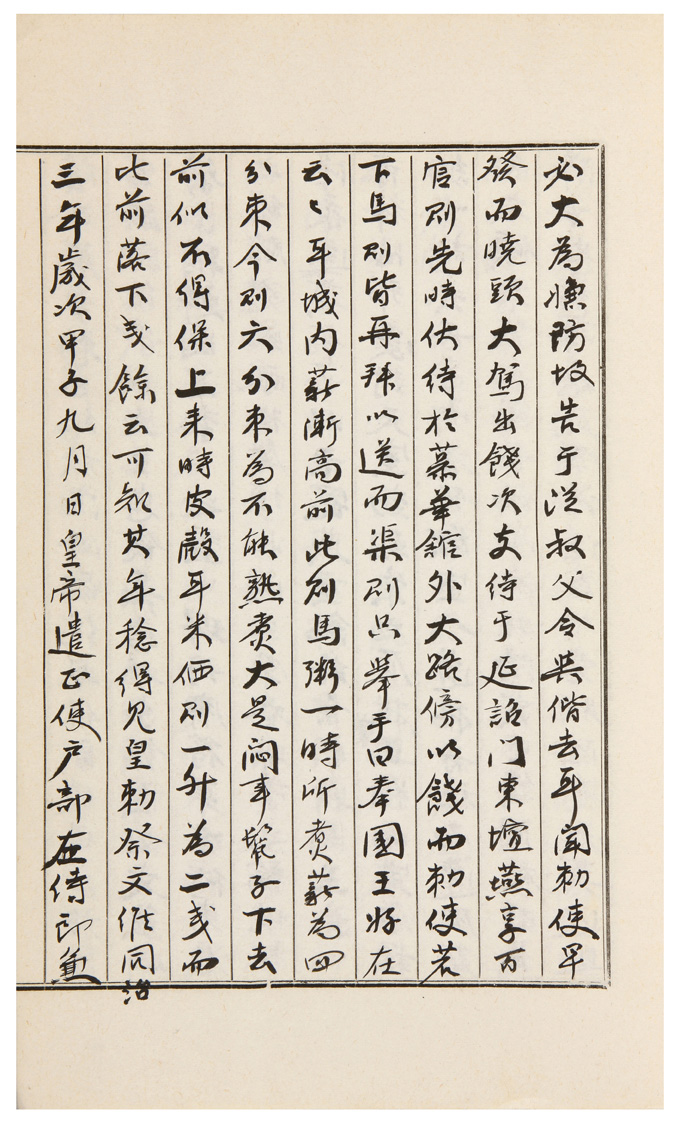 必大為慊防坟告于從叔父令與偕去耳聞勅使早
發而曉頭大駕出餞次支待于延詔門東壇燕享百
官則先時伏待於慕華舘外大路傍以餞而勅使若
下馬則皆再拜以送而渠則只擧手曰奉國王好在
云〻耳城內薪漸高前此則馬粥一時所煮薪為四
分束今則六分束為不能熟煑大是悶事鬣子下去
前似不得保上来時皮殼耳米価則一升為二戔而
此前落下戔餘云可知其年稔得見皇勅祭文維同治
三年歲次甲子九月日皇帝遣正使户部左侍郎兼